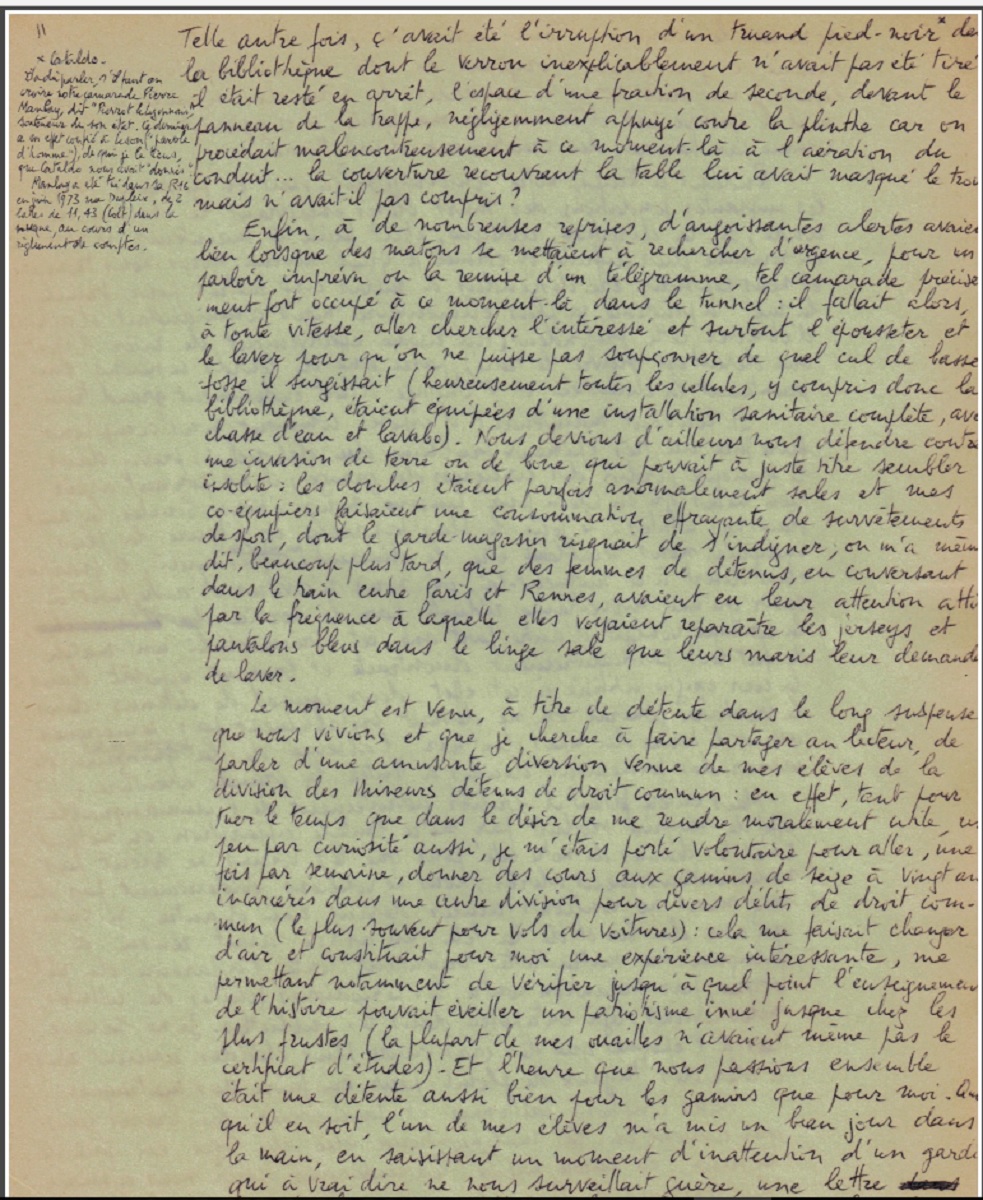 11
x Cataldo.
croire notre camarade Pierre
Manhay, dit "Pierrot le Lyonnais",
souteneur de son état. Ce dernier
a en effet confié à ("parole
d'homme"), de qui je le tiens,
que Cataldo nous avait "donnés"
Manhay a été tué dans le
en juin 1973 rue Dupleix, de 2
balles de 11,43 (Colt) dans la
nuque, au cours d'un
règlement de comptes.
Telle autre fois, ç'avait été l'irruption d'un truand pied-noir x de
la bibliothèque dont le verrou inexplicablement n'avait pas été tiré
il était resté en arrêt, l'espace d'une fraction de seconde, devant le
panneau de la trappe, négligemment appuyé contre la plinthe car on
procédait malencontreusement à ce moment-là à l'aération du
conduit... la couverture recouvrant la table lui avait masqué le trou
mais n'avait-il pas compris ?
Enfin, à de nombreuses reprises, d'angoissantes alertes avaie
lieu lorsque des matons se mettaient à rechercher d'urgence, pour un
parloir imprévu ou la remise d'un télégramme, tel camarade précisé
ment fort occupé à ce moment-là dans le tunnel : il fallait alors,
à toute vitesse, aller chercher l'intéressé et surtout l'épousseter et
le laver pour qu'on ne puisse pas soupçonner de quel cul de basse
-fosse il surgissait (heureusement toutes les cellules, y compris donc la
bibliothèque, étaient équipées d'une installation sanitaire complète, ave
chasse d'eau et lavabo). Nous devions d'ailleurs nous défendre contre
une invasion de terre ou de boue qui pouvait à juste titre sembler
insolite : les douches étaient parfois anormalement sales et mes
co-équipiers faisaient une consommation effrayante de survêtements
de sport, dont le garde-magasin risquait de s'indigner ; on m'a même
dit, beaucoup plus tard, que des femmes de détenus, en conversant
dans le train entre Paris et Rennes, avaient eu leur attention atti
par la fréquence à laquelle elles voyaient reparaître les jerseys et
pantalons bleus dans le linge sale que leurs maris leur demanda
de laver.
Le moment est venu, à titre de détente dans le long suspense
que nous vivions et que je cherche à faire partager au lecteur, de
parler d'une amusante diversion venue de mes élèves de la
division des mineurs détenus de droit commun : en effet, tant pour
tuer le temps que dans le désir de me rendre moralement utile, un
peu par curiosité aussi, je m'étais porté volontaire pour aller, une
fois par semaine, donner des cours aux gamins de seize à vingt an
incarcérés dans une autre division pour divers délits de droit com-
mun (le plus souvent pour vols de voitures) : cela me faisait changer
d'air et constituait pour moi une expérience intéressante, me
permettant notamment de vérifier jusqu'à quel point l'enseignemen
de l'histoire pouvait éveiller un patriotisme inné jusque chez les
plus frustes (la plupart de mes ouailles n'avaient même pas le
certificat d'études). Et l'heure que nous passions ensemble
était une détente aussi bien pour les gamins que pour moi.
qu'il en soit, l'un de mes élèves m'a mis un beau jour dans
la main, en saisissant un moment d'inattention d'un garde
qui à vrai dire ne nous surveillait guère, une lettre